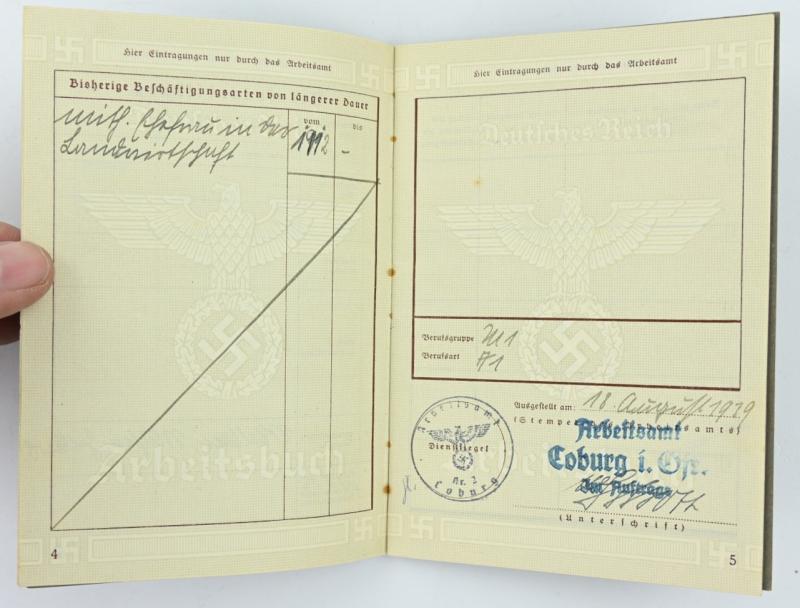 Hier Eintragungen nur durch das Arbeitsamt
Bisherige Beschäftigungsarten von längerer Dauer
vom
bis
mith. Ehefrau in der
Landwirtschaft
1912
-
Arbeitsbuch
4
Hier Eintragungen nur durch das Arbeitsamt
Deutsches Reich
Berufsgruppe
Berufsart
Ausgestellt am: 18. August 1939
Arbeitsamt
Dienstsiegel
Nr. 2
Coburg
Arbeitsamt
Coburg i. Ofr.
Im Auftrage
(Unterschrift)
5